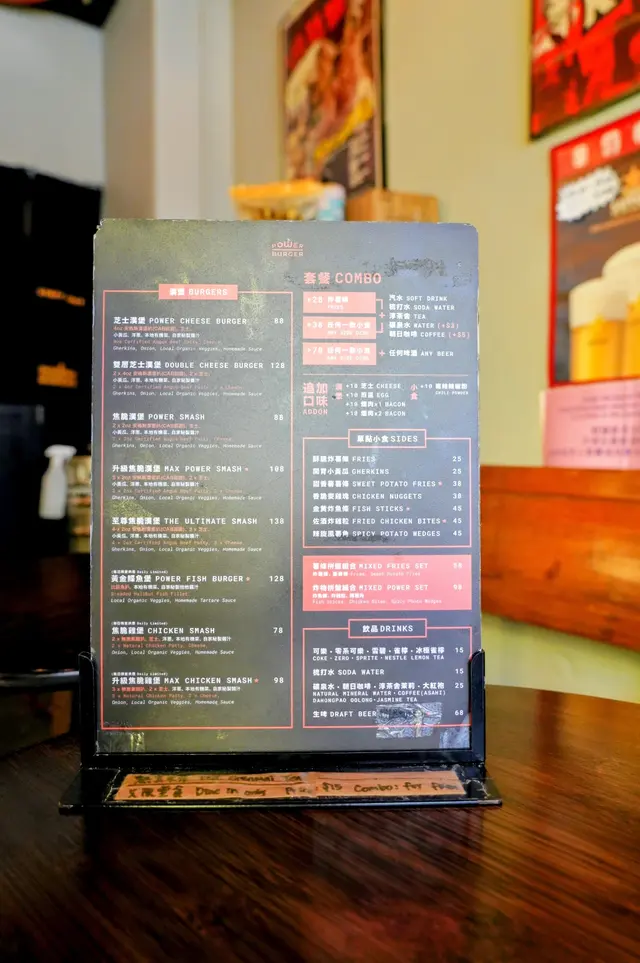 POWER
BURGER
漢堡 BURGERS
芝士漢堡 POWER CHEESE BURGER 88
小黃瓜, 洋蔥, 本地有機菜, 自家秘製醬汁
Gherkins, Onion, Local Organic Veggies, Homemade Sauce
雙層芝士漢堡 DOUBLE CHEESE BURGER 128
小黃瓜, 洋蔥, 本地有機菜, 自家秘製醬汁
Gherkins, Onion, Local Organic Veggies, Homemade Sauce
焦脆漢堡 POWER SMASH 88
小黃瓜, 洋蔥, 本地有機菜, 自家秘製醬汁
Gherkins, Onion, Local Organic Veggies, Homemade Sauce
升級焦脆漢堡 MAX POWER SMASH 108
小黃瓜, 洋蔥, 本地有機菜, 自家秘製醬汁
Gherkins, Onion, Local Organic Veggies, Homemade Sauce
至尊焦脆漢堡 THE ULTIMATE SMASH 138
小黃瓜, 洋蔥, 本地有機菜, 自家秘製醬汁
Gherkins, Onion, Local Organic Veggies, Homemade Sauce
黃金鰈魚堡 POWER FISH BURGER 128
Breaded Halibut Fish Fillet
Local Organic Veggies, Homemade Tartare Sauce
焦脆雞堡 CHICKEN SMASH 78
2 x Natural Chicken Patty, Cheese,
Onion, Local Organic Veggies, Homemade Sauce
升級焦脆雞堡 MAX CHICKEN SMASH 98
3 x Natural Chicken Patty, 2 x Cheese,
Onion, Local Organic Veggies, Homemade Sauce
套餐 COMBO
+28 炸薯條
FRIES
+38 任何一款小食
ANY SIDE DISH
+78 任何一款小食
ANY SIDE DISH
汽水 SOFT DRINK
梳打水 SODA WATER
+ 淳茶舍 TEA
礦泉水 WATER (+$3)
朝日咖啡 COFFEE (+$5)
+ 任何啤酒 ANY BEER
追加口味
ADDON
漢堡
+10 芝士 CHEESE
+10 煎蛋 EGG
+10 煙肉x1 BACON
+18 煙肉x2 BACON
小食
CHILI POWDER
單點小食 SIDES
酥脆炸薯條 FRIES 25
開胃小黃瓜 GHERKINS 25
甜番薯薯條 SWEET POTATO FRIES 38
香脆麥雞塊 CHICKEN NUGGETS 38
金黃炸魚條 FISH STICKS 45
佐酒炸雞粒 FRIED CHICKEN BITES 45
辣旋風薯角 SPICY POTATO WEDGES 45
薯條拼盤組合 MIXED FRIES SET 58
炸物拼盤組合 MIXED POWER SET 98
飲品 DRINKS
可樂・零系可樂・雪碧・雀檸・冰極雀檸 15
COKE・ZERO・SPRITE・NESTLE LEMON TEA
梳打水 SODA WATER 15
礦泉水・朝日咖啡・淳茶舍茉莉・大紅袍 25
NATURAL MINERAL WATER・COFFEE(ASAHI)
DAHONGPAO OOLONG・JASMINE TEA
生啤 DRAFT BEER 68
$15 Combo: for